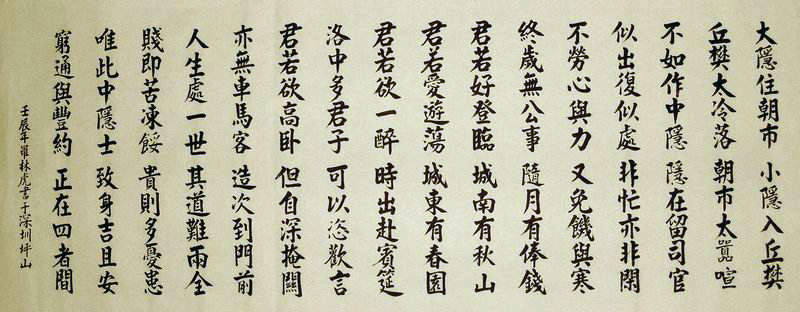 大隱住朝市 小隱入丘樊
丘樊太冷落 朝市太囂喧
不如作中隱 隱在留司官
似出復似處 非忙亦非閑
不勞心與力 又免饑與寒
終歲無公事 隨月有俸錢
君若好登臨 城南有秋山
君若愛遊蕩 城東有春園
君若欲一醉 時出赴賓筵
洛中多君子 可以恣歡言
君若欲高卧 但自深掩關
亦無車馬客 造次到門前
人生處一世 其道難兩全
賤即苦凍餒 貴則多憂患
唯此中隱士 致身吉且安
窮通與豐約 正在四者間
壬辰年羅林虎書于深圳坪山